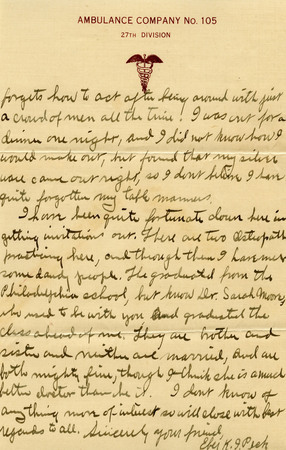 AMBULANCE COMPANY No. 105
27TH DIVISION
forgets how to act after being around with just
a crowd of men all the time! I was out for a
dinner one night, and I did not know how I
would make out, but found that my silver
ware came out right, so I dont believe I have
quite forgotten my table manners.
I have been quite fortunate down here in
getting invitations out. There are two Osteopaths
practicing here, and through them I have met
some dandy people. He graduated from the
Philadelphia school, but know Dr. Sarah Moore,
who used to be with you and graduated the
class ahead of me. They are brother and
sister and neither are married, and are
both mighty fine, though I think she is a much
better doctor than he is. I dont know of
anything more of interest so will close with best
regards to all. Sincerely your friend,
K. J. Peck